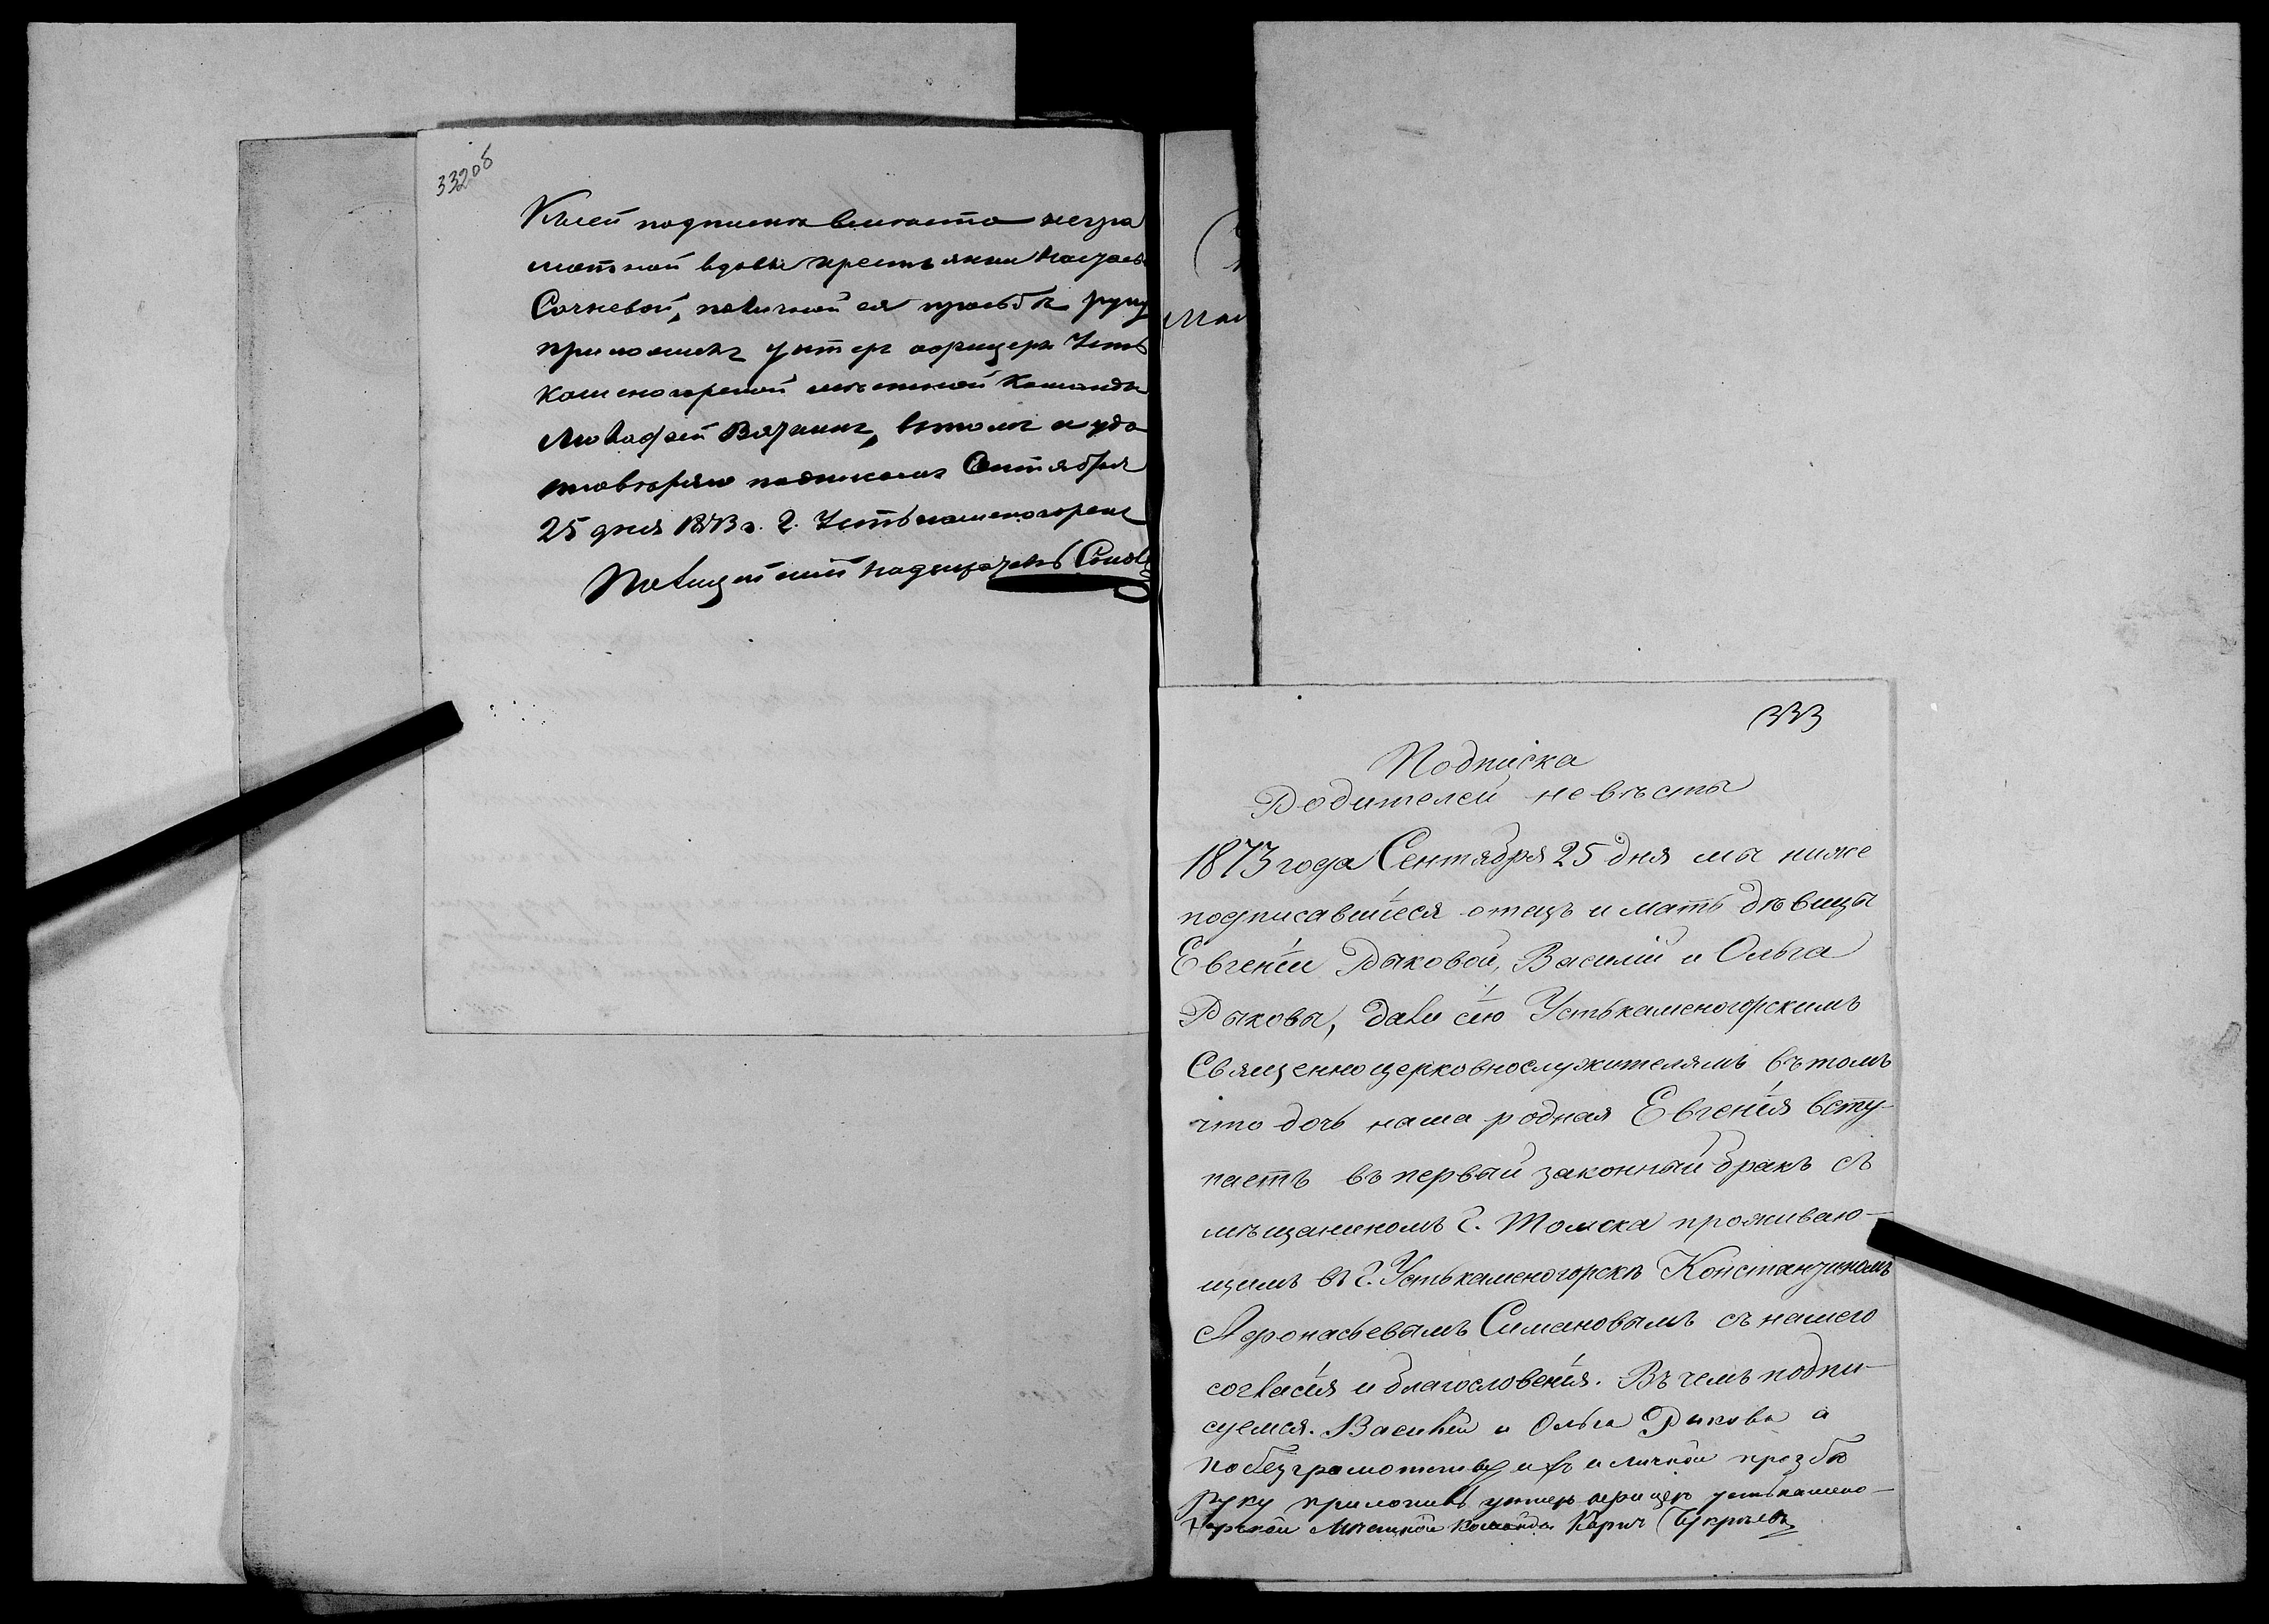 332об
Ксей подписки вместо негра
мотной вдовы крестьянки
Сочневой, поличной ея прозьбе руку
приложилъ унтеръ офицеръ Усть
каменогорской местной команды
Вязинъ, втомъ и удо
стоверяю подписомъ Сентября
25 дня 1873 г. г. Устькаменогорскъ
Полицейский надзиратель
333
Подписка
Родителей невѣсты
1873 года Сентября 25 дня мы ниже
подписавшіеся отецъ и мать дѣвицы
Евгеніи Рыковой, Василій и Ольга
Рыковы, дали сію Устькаменогорскимъ
Священноцерковнослужителямъ въ томъ
что дочь наша родная Евгенія всту-
паетъ въ первый законный бракъ съ
мѣщаниномъ г. Томска проживаю-
щимъ въ г. Устькаменогорскѣ Констанзиномъ
Афонасьевымъ Симановымъ съ нашего
согласія и благословенія. Въ чемъ подпи-
суемся. Василій и Ольга Рыковы а
по безграмотству ихъ и личной прозбѣ
руку приложилъ унтеръ офицеръ устькамено-
горской Мѣстной Команды Карпъ